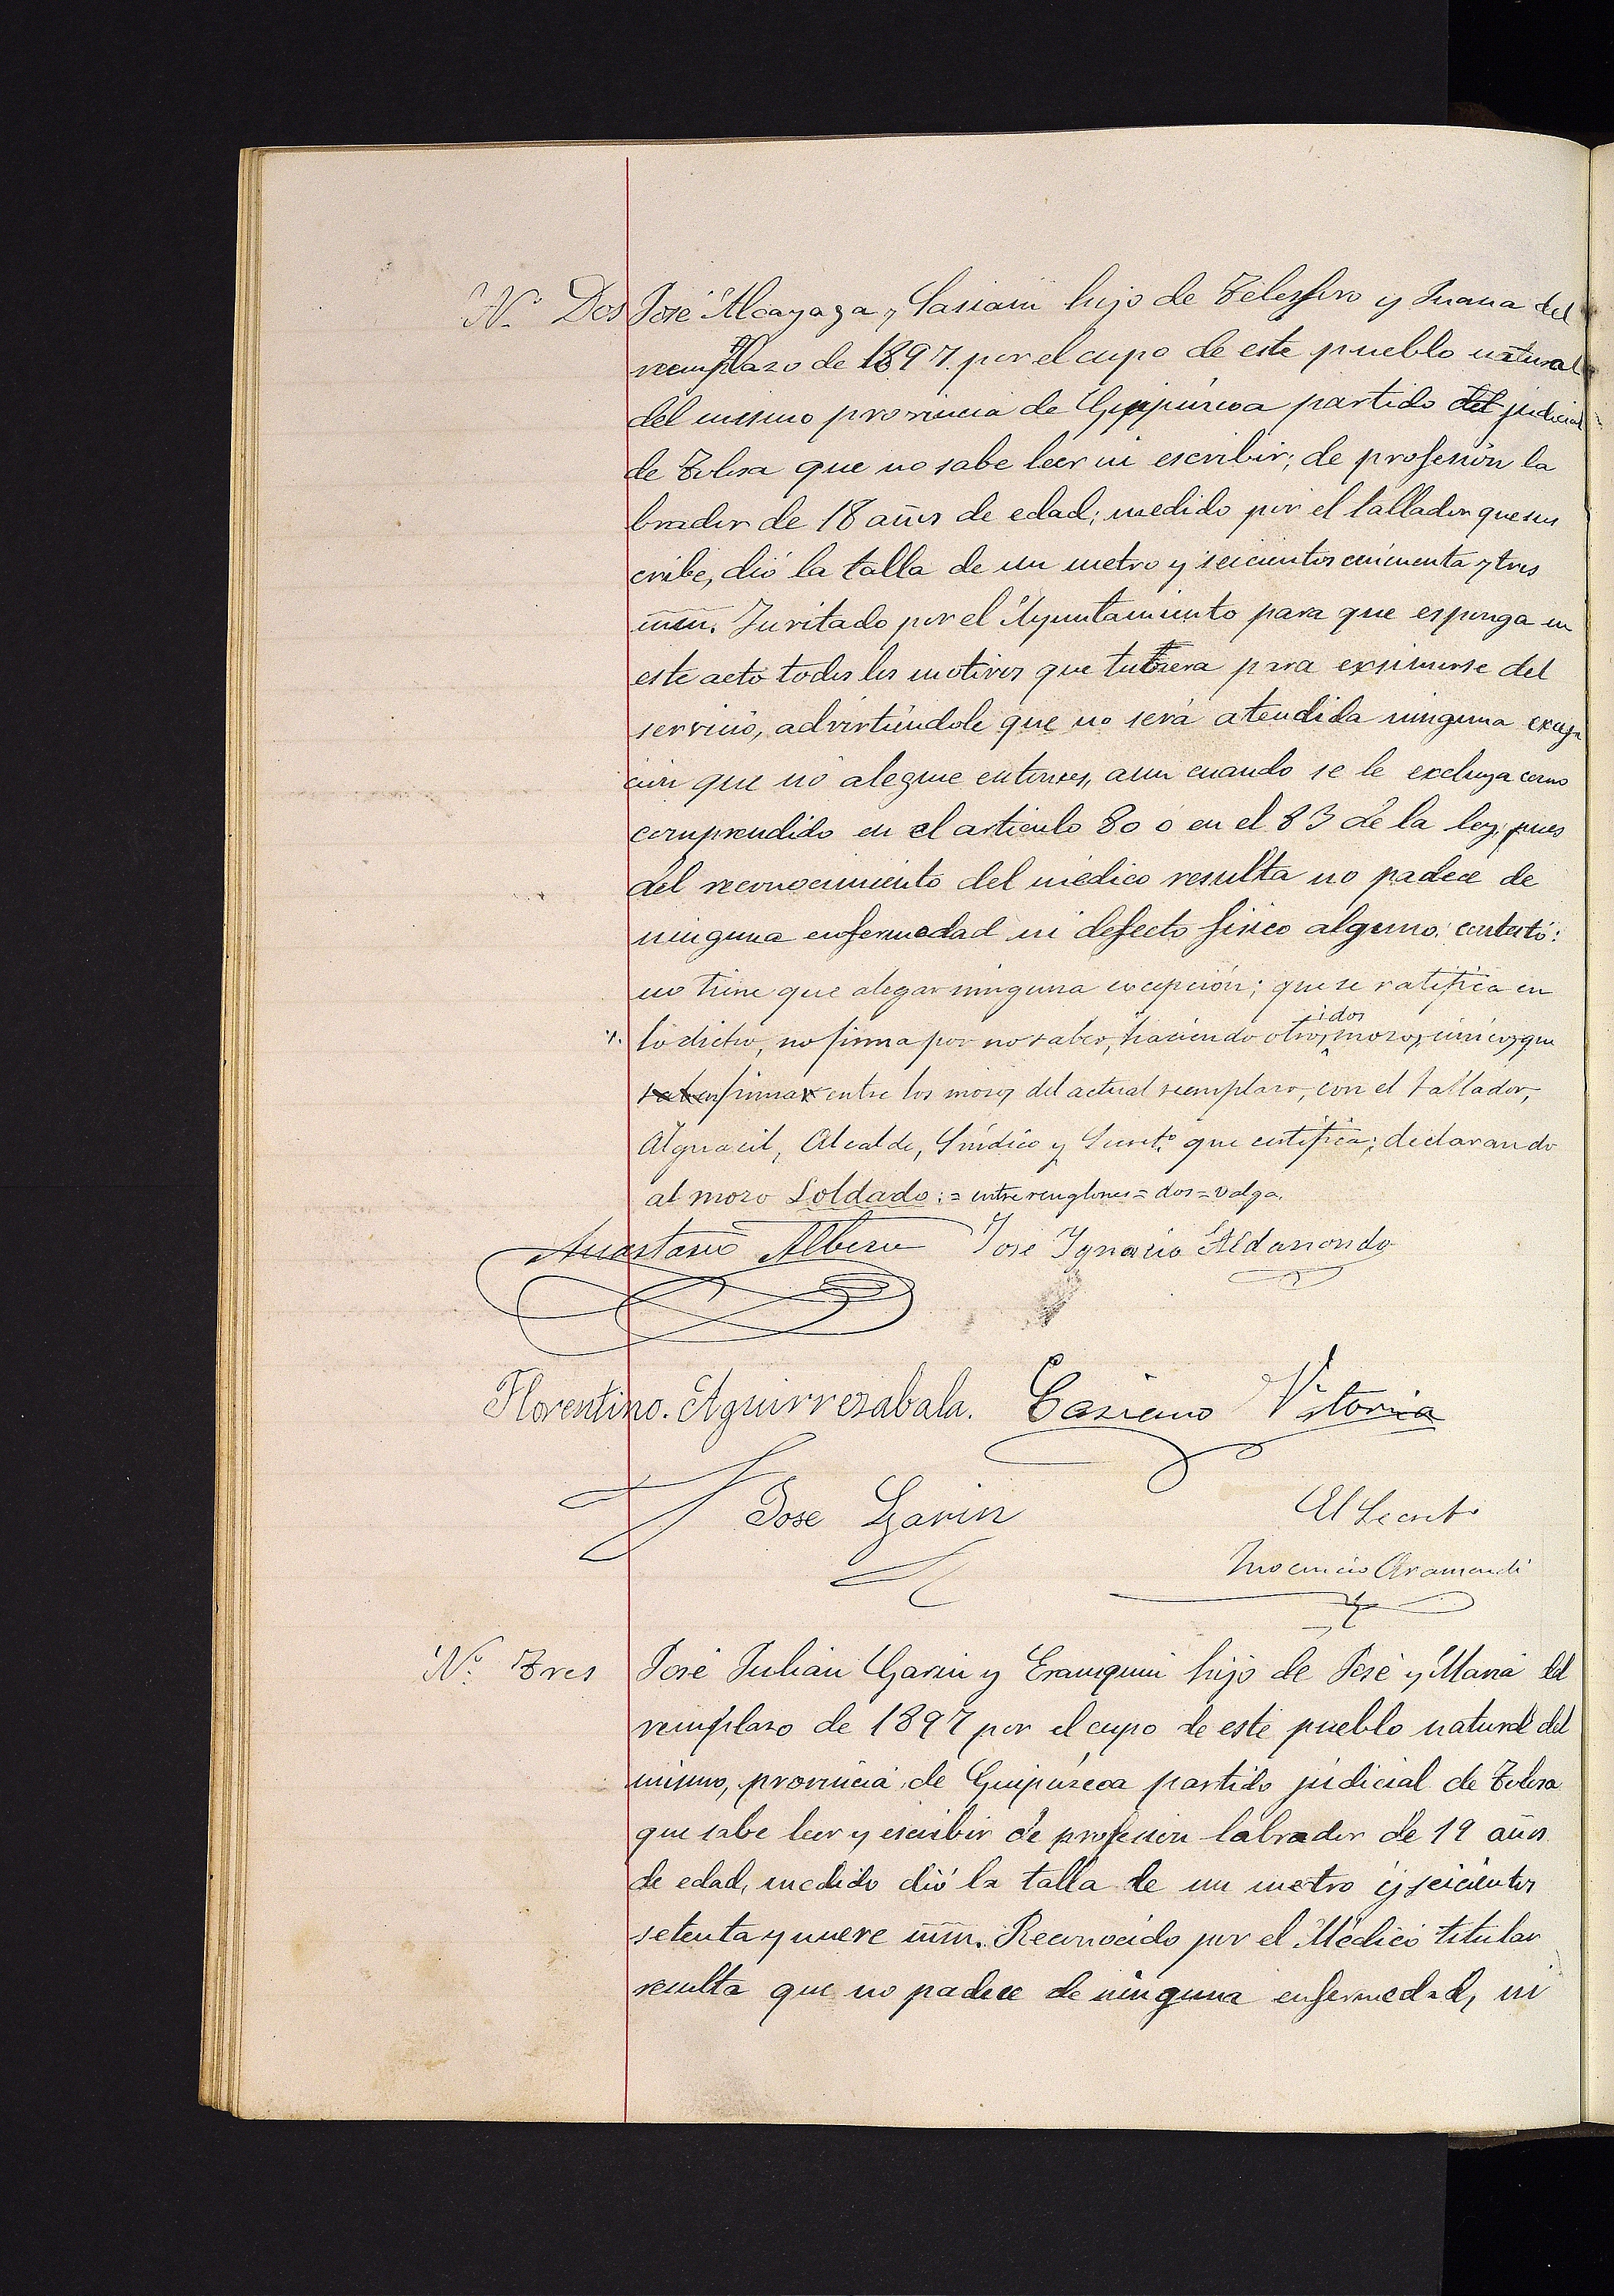 Nº Dos José Alcayaga y Sasiain hijo de Telesforo y Juana del
remplazo de 1897 por el cupo de este pueblo natural
del mismo provincia de Guipúrcoa partido del judicial
de Tolosa que no sabe leer ni escribir; de profesión la
brador de 18 años de edad; medido por el tallador que sus
cribe, dió la talla de un metro y seicientos cincuenta y tres
mm. Invitado por el Ayuntamiento para que esponga en
este acto todos los motivos que tubiera para exsimirse del
servicio, advirtiéndole que no será atendida ninguna excep
ción que no alegue entonces, aun cuando se le excluya como
comprendido en el articulo 80 ó en el 83 de la ley; pues
del reconocimiento del médico resulta no padece de
ninguna enfermedad ni defecto fisico alguno: contestó:
no tiene que alegar ninguna excepción; que se ratifica en
lo dicho, no firma por no saber, haciendo otros mozos, únicos que
idos
saben firmar entre los mozos del actual reemplazo, con el tallador,
Alguacil, Alcalde, Síndico y Secretº que certifica; declarando
al mozo Soldado: = entre renglones = dos = valga.
Anastasio Albisu José Ygnacio Aldanondo
Florentino. Aguirrezabala. Casiano Vitoria
Jose Garin El Secretº
Inocencio Aramendi
Nº Tres José Julián Garin y Erausquin hijo de José y María del
remplazo de 1897 por el cupo de este pueblo natural del
mismo, provincia de Guipúzcoa partido judicial de Tolosa
que sabe leer y escribir de profesion labrador de 19 años
de edad, medido dió la talla de un metro y seicientos
setenta y nueve mm. Reconocido por el Médico titular
resulta que no padece de ninguna enfermedad, ni